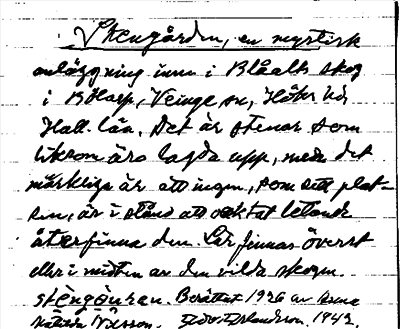 Stengården, en mystisk
anläggning inne i Blåalts skog
i Bölarp, Veinge sn, Höks hd,
Hall. län. Det är stenar som
liksom äro lagda upp, med det
märkliga är att ingen, som sett plat-
sen, är i stånd att vid letande
återfinna den. Lär finnas överst
eller i mitten av den vilda skogen.
stèngòuren. Berättat 1926 av
Nilsson. 1942.